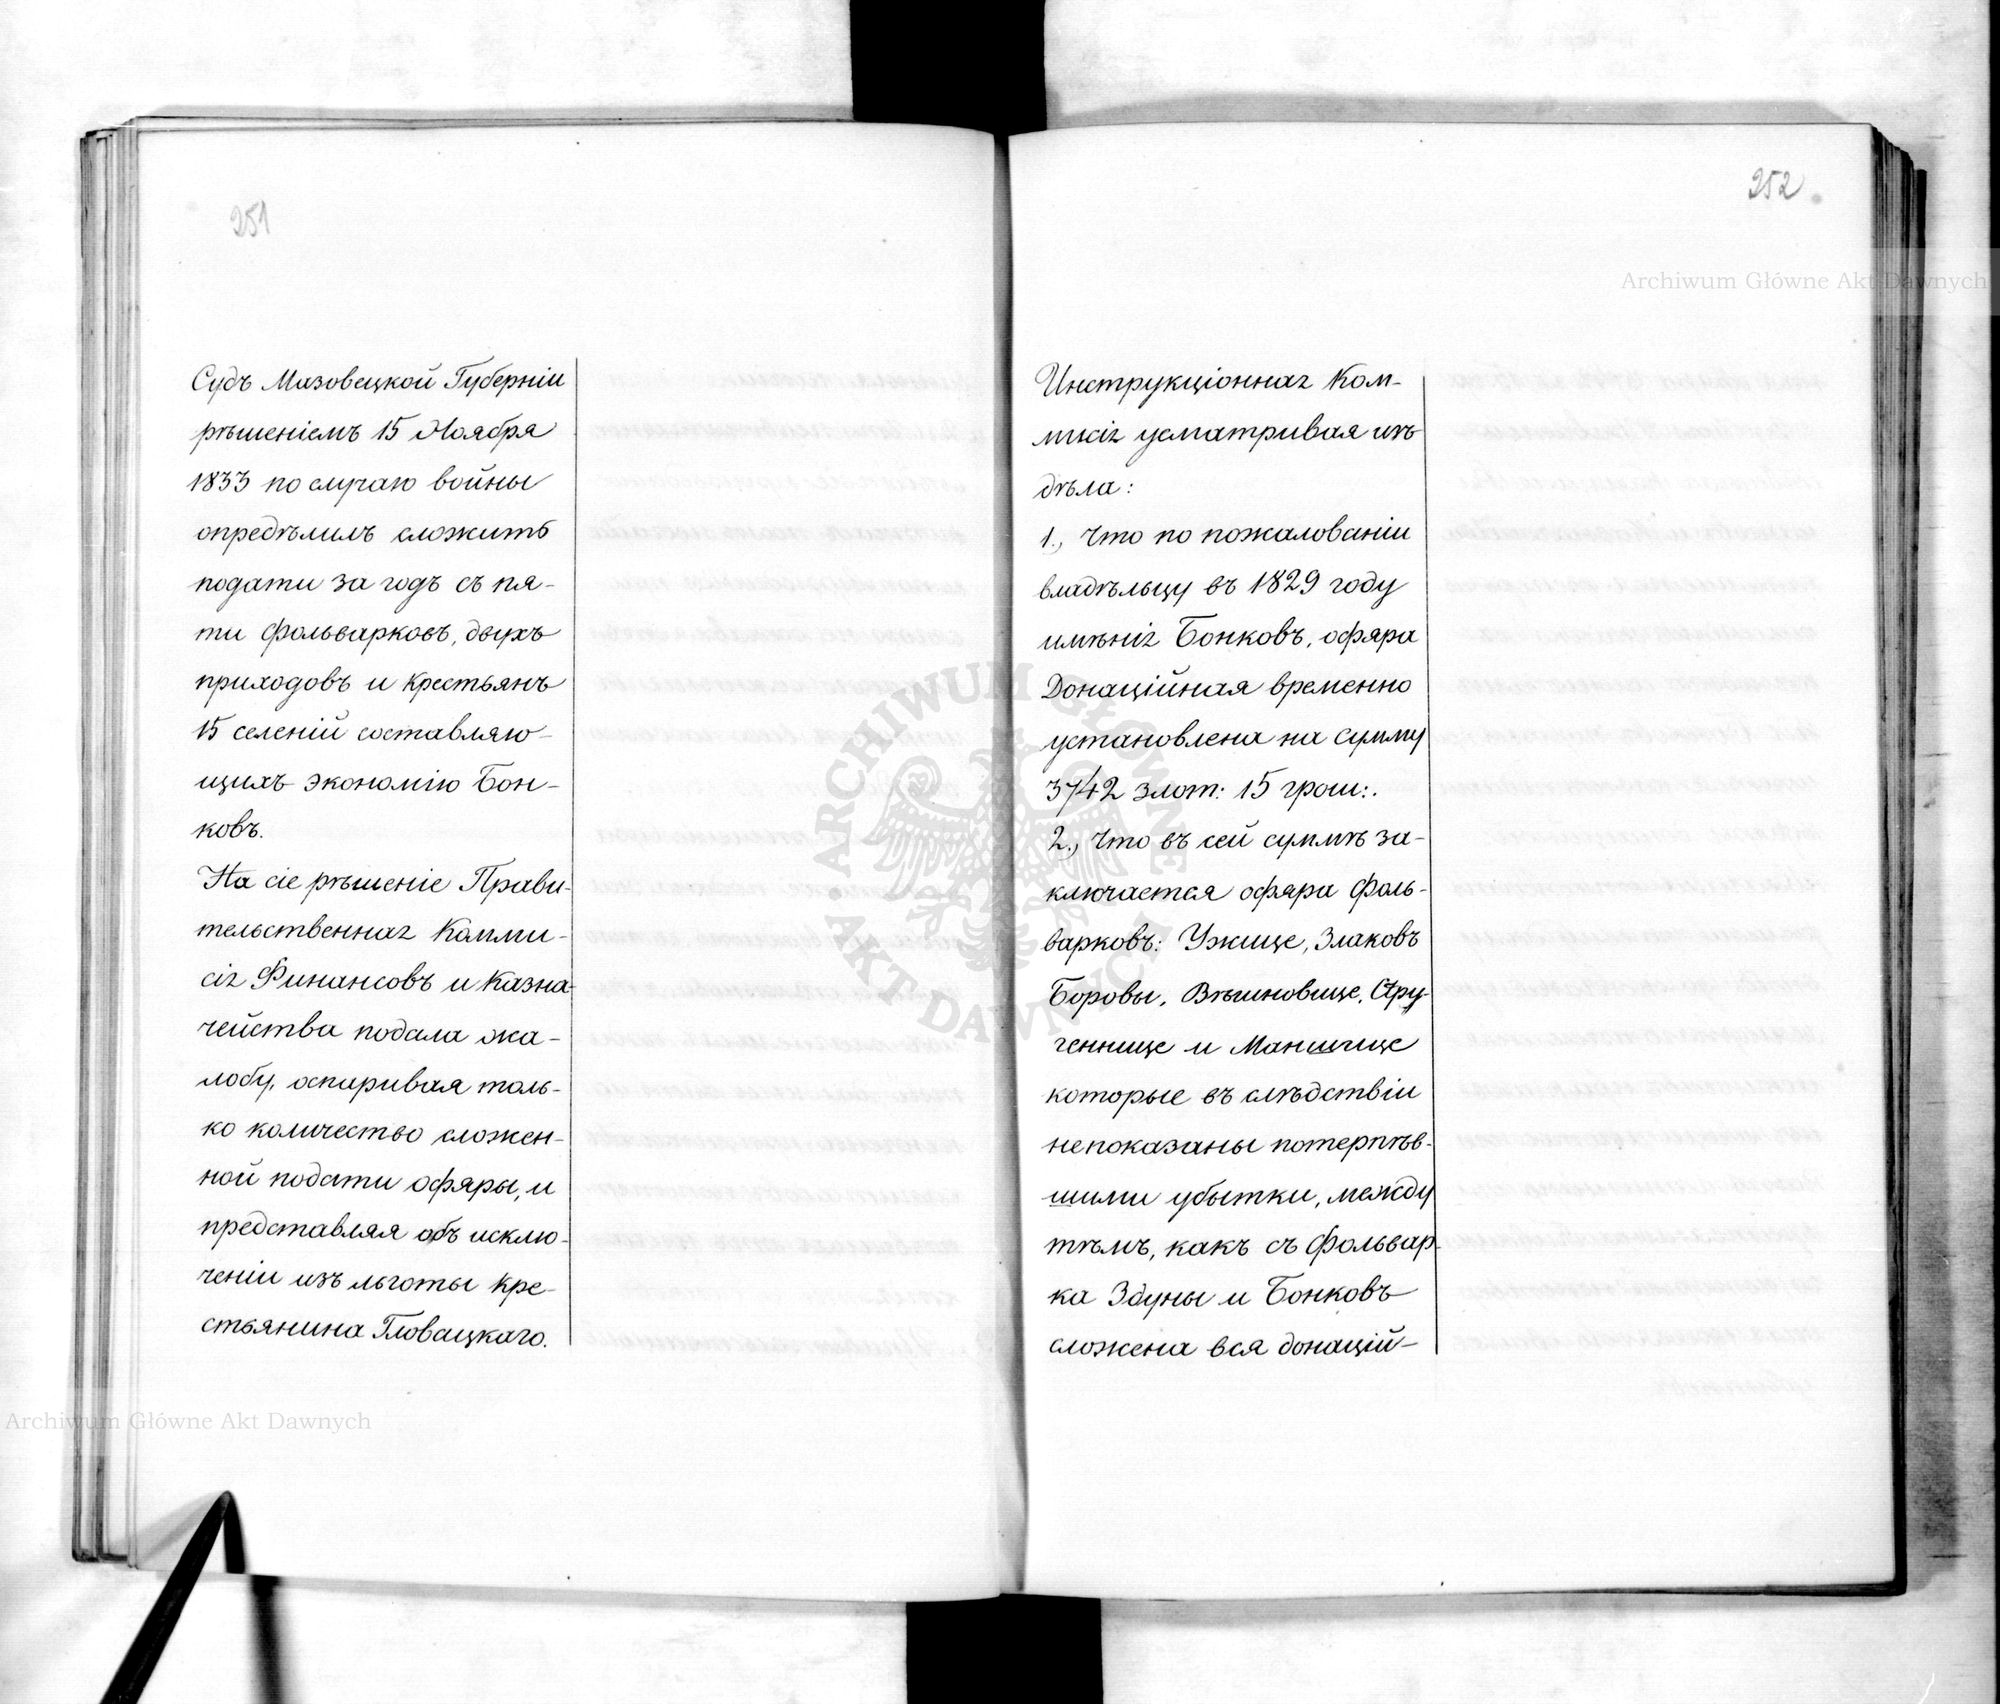 251
Судъ Мазовецкой Губерніи
рѣшеніемъ 15 Ноября
1833 по случаю войны
опредѣлилъ сложить
подати за годъ съ пя-
ти фольварковъ, двухъ
приходовъ и крестьянъ
15 селеній составляю-
щихъ экономію Бон-
ковъ.
На сіе рѣшеніе Прави-
тельственная Комми-
сія Финансовъ и Казна-
чейства подала жа-
лобу, оспаривая толь-
ко количество сложен-
ной подати офяры, и
представляя объ исклю-
ченіи изъ льготы кре-
стьянина Гловацкаго.
252
Инструкціонная Ком-
мисія усматривая изъ
дѣла:
1., Что по пожалованіи
владѣльцу въ 1829 году
имѣнія Бонковъ, офяра
Донаційная временно
установлена на сумму
3742 злот: 15 грош:.
2., Что въ сей суммѣ за-
ключается офяра фоль-
варковъ: Ужице, Злаковъ
Боровы, Вѣшновице, Стру-
генице и Маншице
которые въ слѣдствіи
непоказаны потерпѣв-
шими убытки, между
тѣмъ, какъ съ фольвар-
ка Здуны и Бонковъ
сложена вся донацій-
Archiwum Główne Akt Dawnych
Archiwum Główne Akt Dawnych
ARCHIWUM GŁÓWNE AKT DAWNYCH